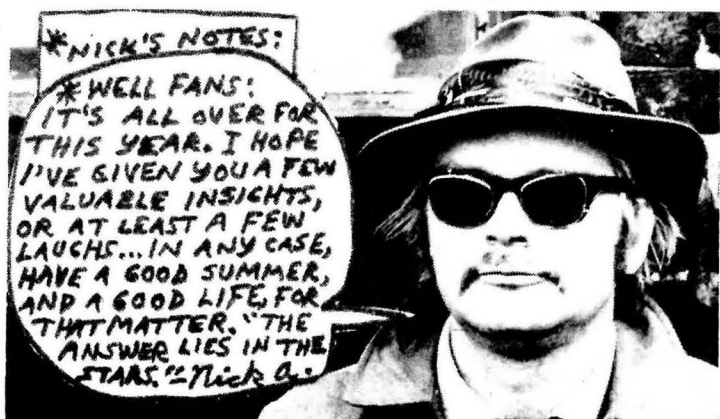 *NICK'S NOTES:
*WELL FANS:
IT'S ALL OVER FOR
THIS YEAR. I HOPE
I'VE GIVEN YOU A FEW
VALUABLE INSIGHTS,
OR AT LEAST A FEW
LAUGHS... IN ANY CASE,
HAVE A GOOD SUMMER,
AND A GOOD LIFE, FOR
THAT MATTER. "THE
ANSWER LIES IN THE
STARS." - Nick a.